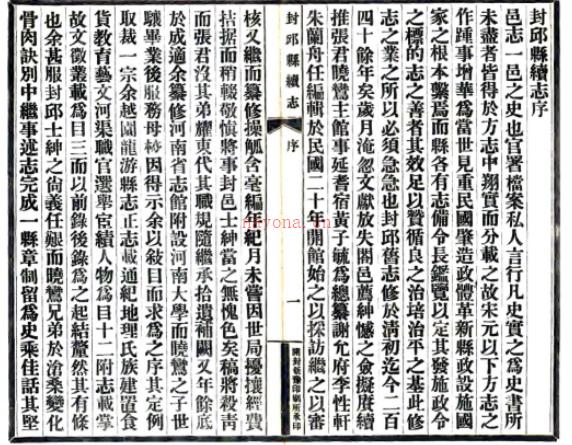 封邱縣續志序
邑志一邑之史也官署檔案私人言行凡史實之爲史書所
未盡者皆得於方志中翔實而分載之故宋元以下方志之
作踵事增華爲當世見重民國肇造政體革新縣政設施國
家之根本繫焉而縣各有志備令長鑑覽以定其發施政令
之標的志之善者其效足以贊循良之治培治平之基此修
志之業之所以必須急急也封邱舊志修於清初迄今二百
四十餘年矣歲月淹忽文獻放失闔邑薦紳憾之僉擬賡續
推張君曉鸞主館事延耆宿黃子毓爲總纂謝允府李性軒
朱蘭舟任編輯於民國二十年開館始之以採訪繼之以審
封邱縣續志
序
一
開封新豫印刷所承印
核又繼而纂修操觚含毫編年紀月未嘗因世局擾攘經費
拮据而稍輟敬慎將事封邑士紳當之無愧色矣稿將殺青
而張君沒其弟耀東代其職規隨繼承拾遺補闕又年餘底
於成適余纂修河南省志館附設河南大學而曉鸞之子世
驤畢業後服務母校因得示余以敍目而求爲之序其定例
取裁一宗余越園龍游縣志正志載通紀地理民族建置食
貨教育藝文河渠職官選舉宦績人物爲目十二附志載掌
故文徵叢載爲目三而以前錄後錄爲之起結釐然其有條
也余甚服封邱士紳之尚義任艱而曉鸞兄弟於滄桑變化
骨肉訣別中繼事述志完成一縣章制留爲史乘佳話其堅
nayona.cn